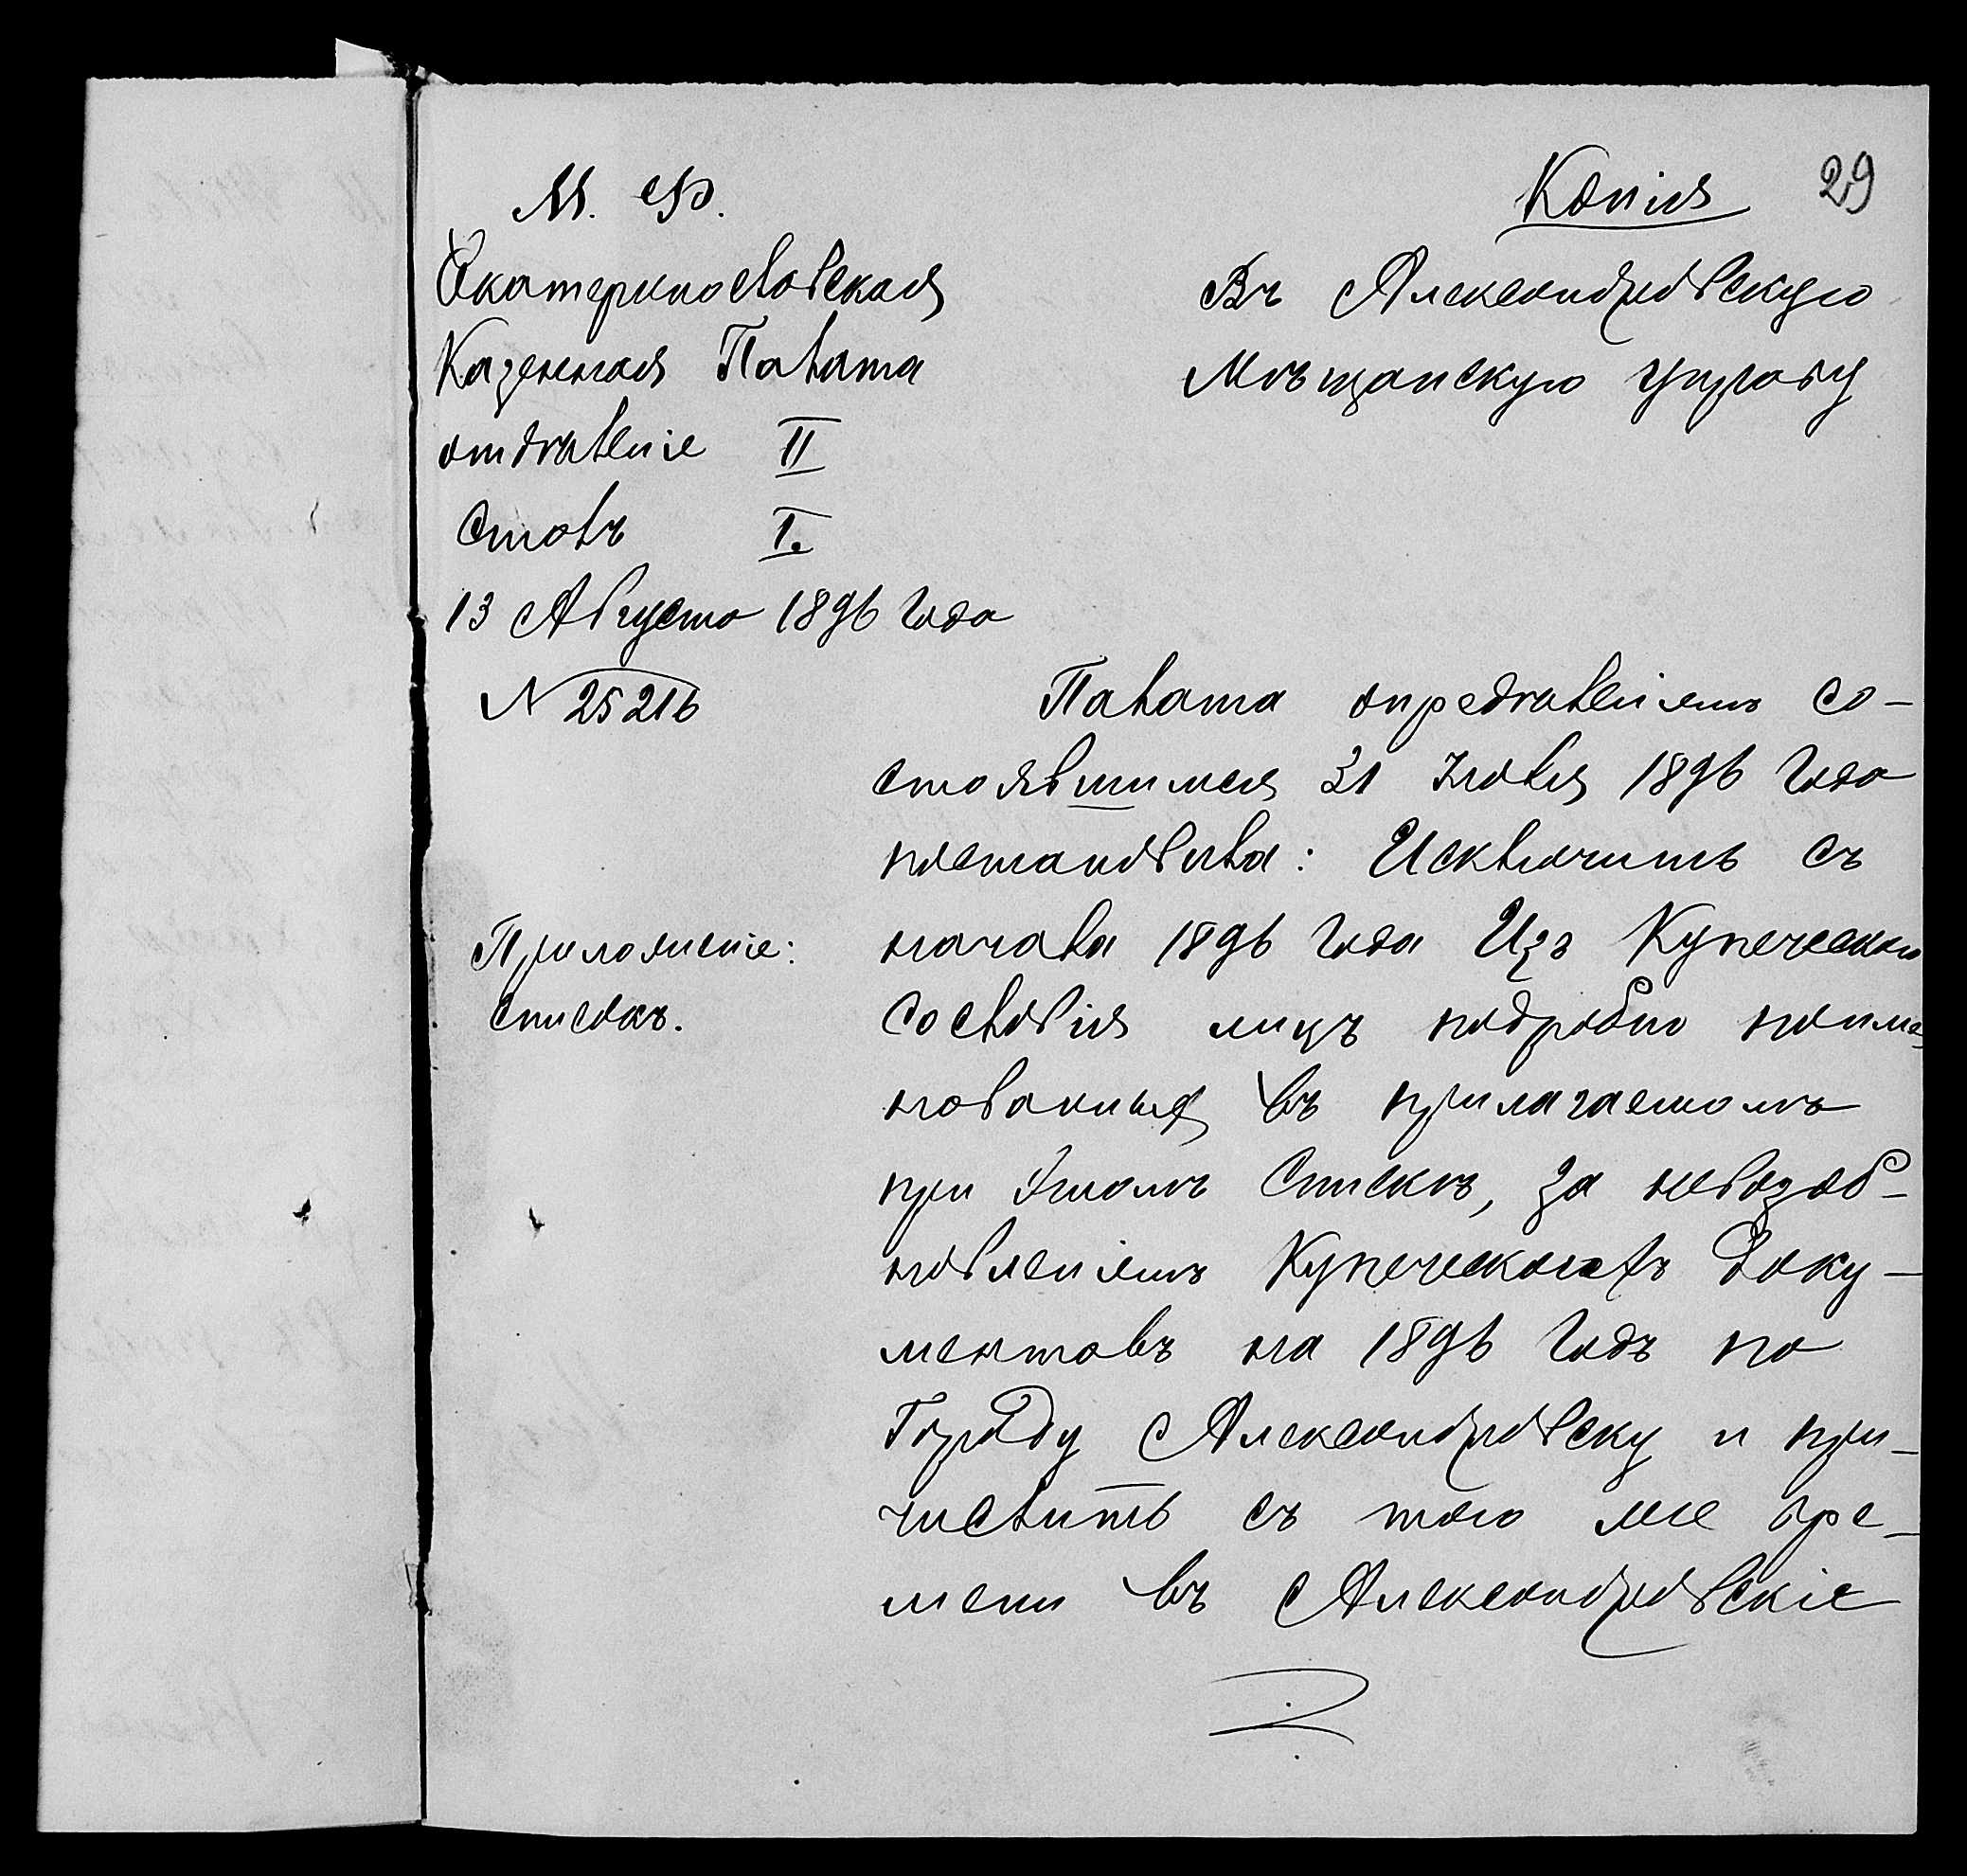 Копія 29
М. Ф.
Екатеринославская
Казенная Палата
отдѣленіе II
Столъ I.
13 Августа 1896 года
N 25216
Въ Александровскую
Мѣщанскую управу
Палата опредѣленіемъ со-
стоявшимся 31 Іюля 1896 года
постановила: Исключить съ
начала 1896 года Изъ Купеческаго
Сословія лицъ подробно поиме-
нованныя въ прилагаемомъ
при этомъ Спискѣ, за невозоб-
новленіемъ Купеческихъ доку-
ментовъ на 1896 годъ по
Городу Александровску и при-
числить съ того же вре-
мени въ Александровскіе
Приложеніе:
списокъ.